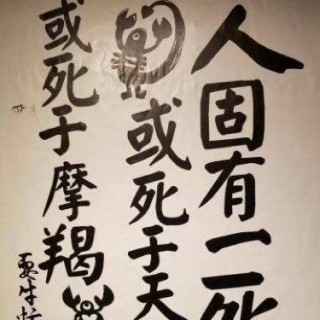 人固有二死
或死于天
或死于摩羯